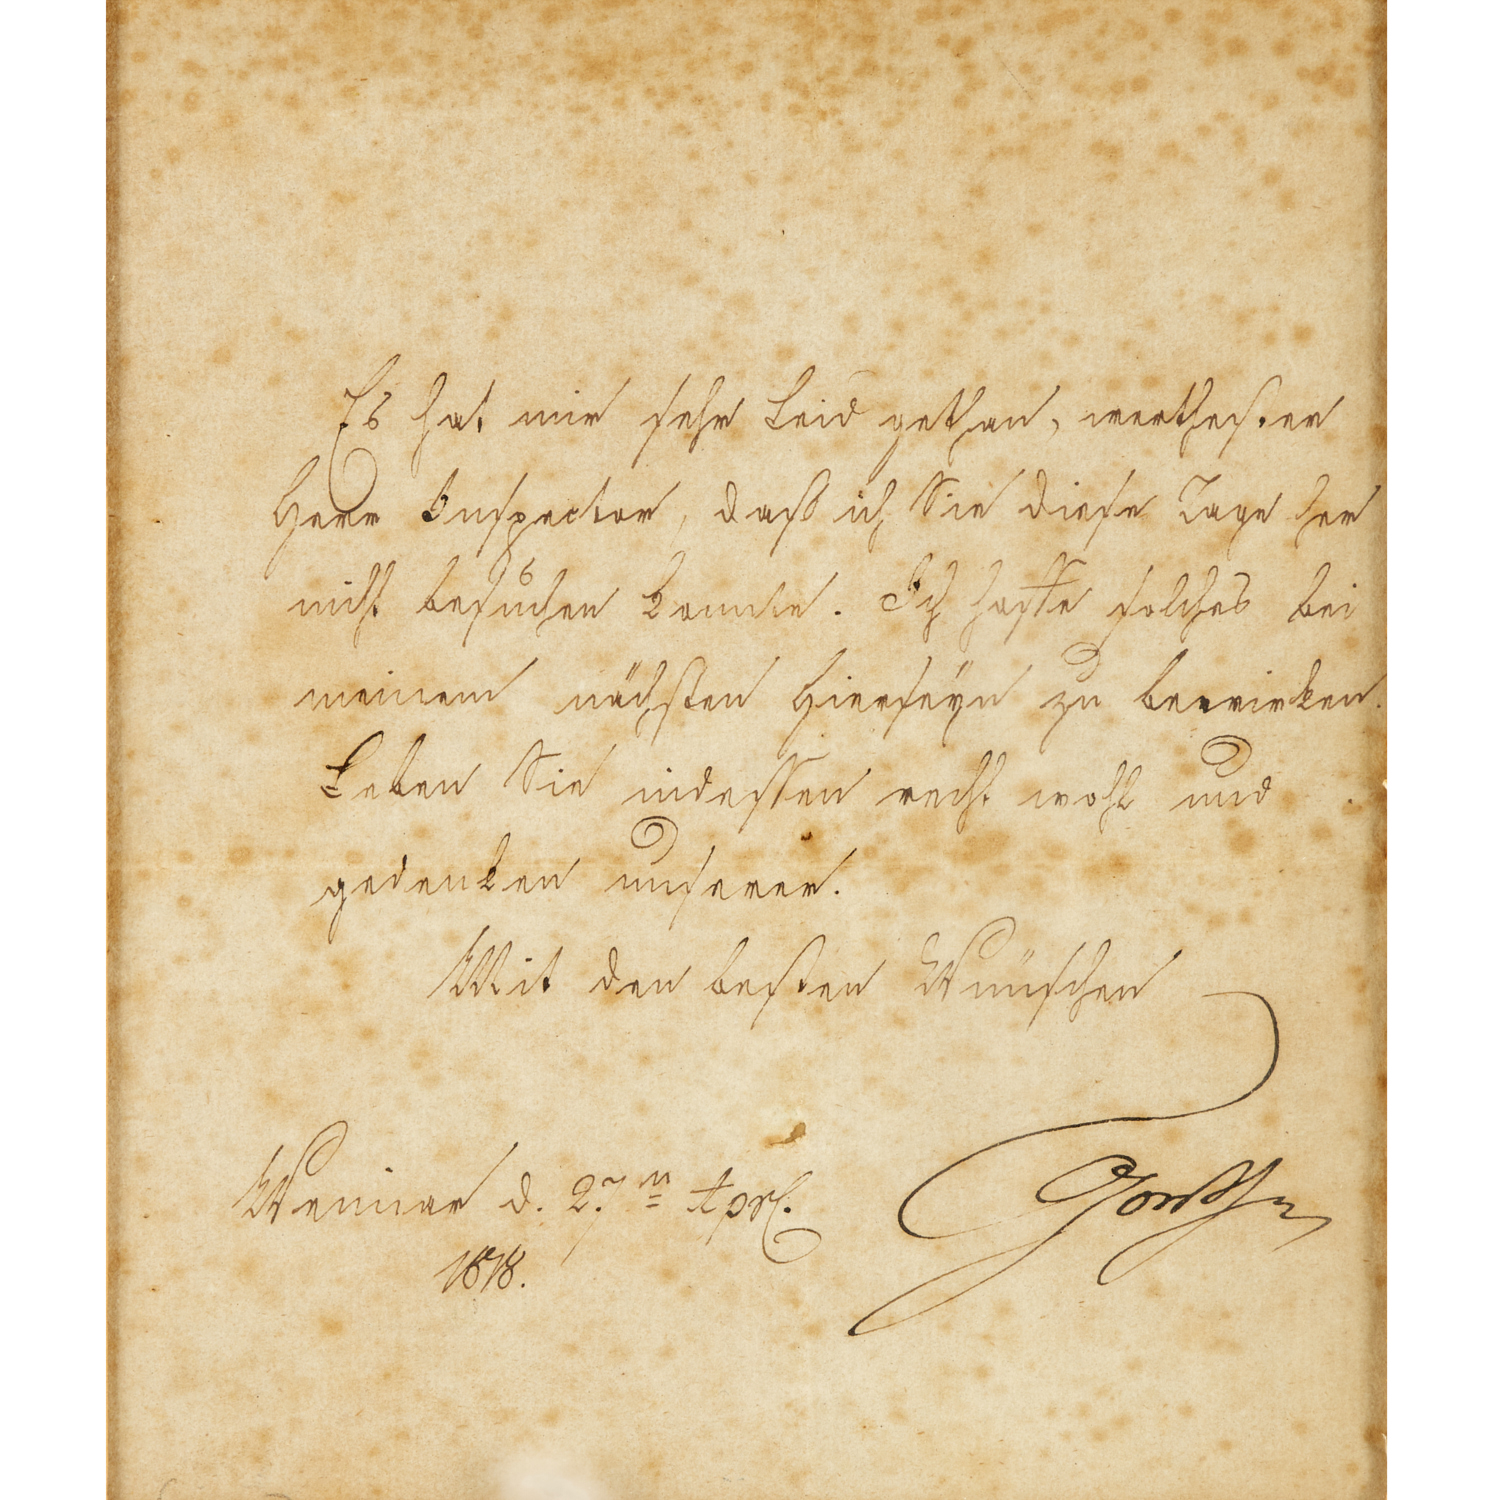 Es hat mir sehr Leid gethan, werthester
Herr Inspector, daß ich Sie diese Tage her
nicht besuchen konnte. Ich hoffe solches bei
meinem nächsten Hierseyn zu bewirken.
Leben Sie indessen recht wohl und
gedenken unserer.
Mit den besten Wünschen
Weimar d. 27.n Aprl.
1818.
Goethe